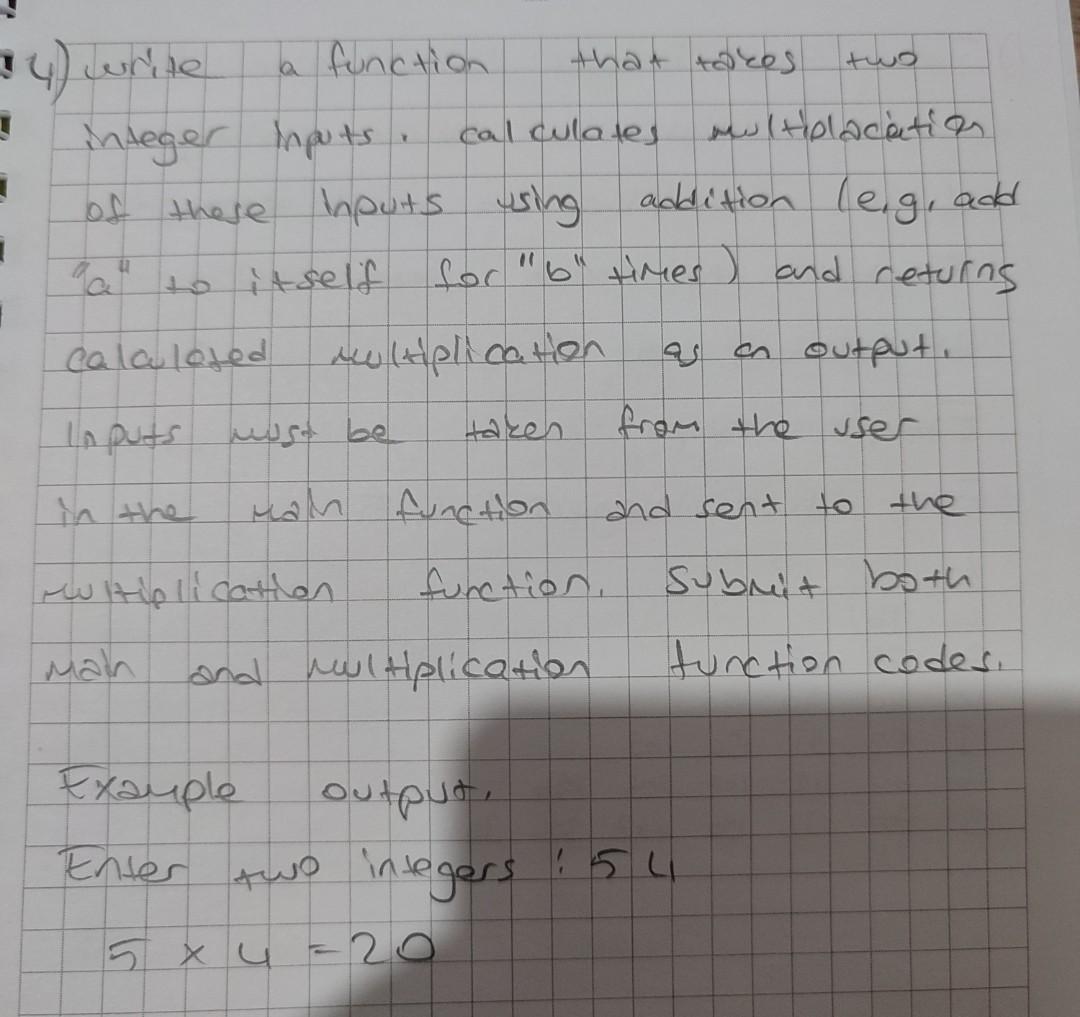 4) write a function that takes two
integer inputs. calculates multiplocation
of these inputs using addition (e.g. add
"a" to itself for "b" times) and returns
calculated multiplication as an output.
Inputs must be taken from the user
in the main function and sent to the
multiplication function. Submit both
main and multiplication function codes.
Example output.
Enter two integers : 5 4
5 x 4 = 20